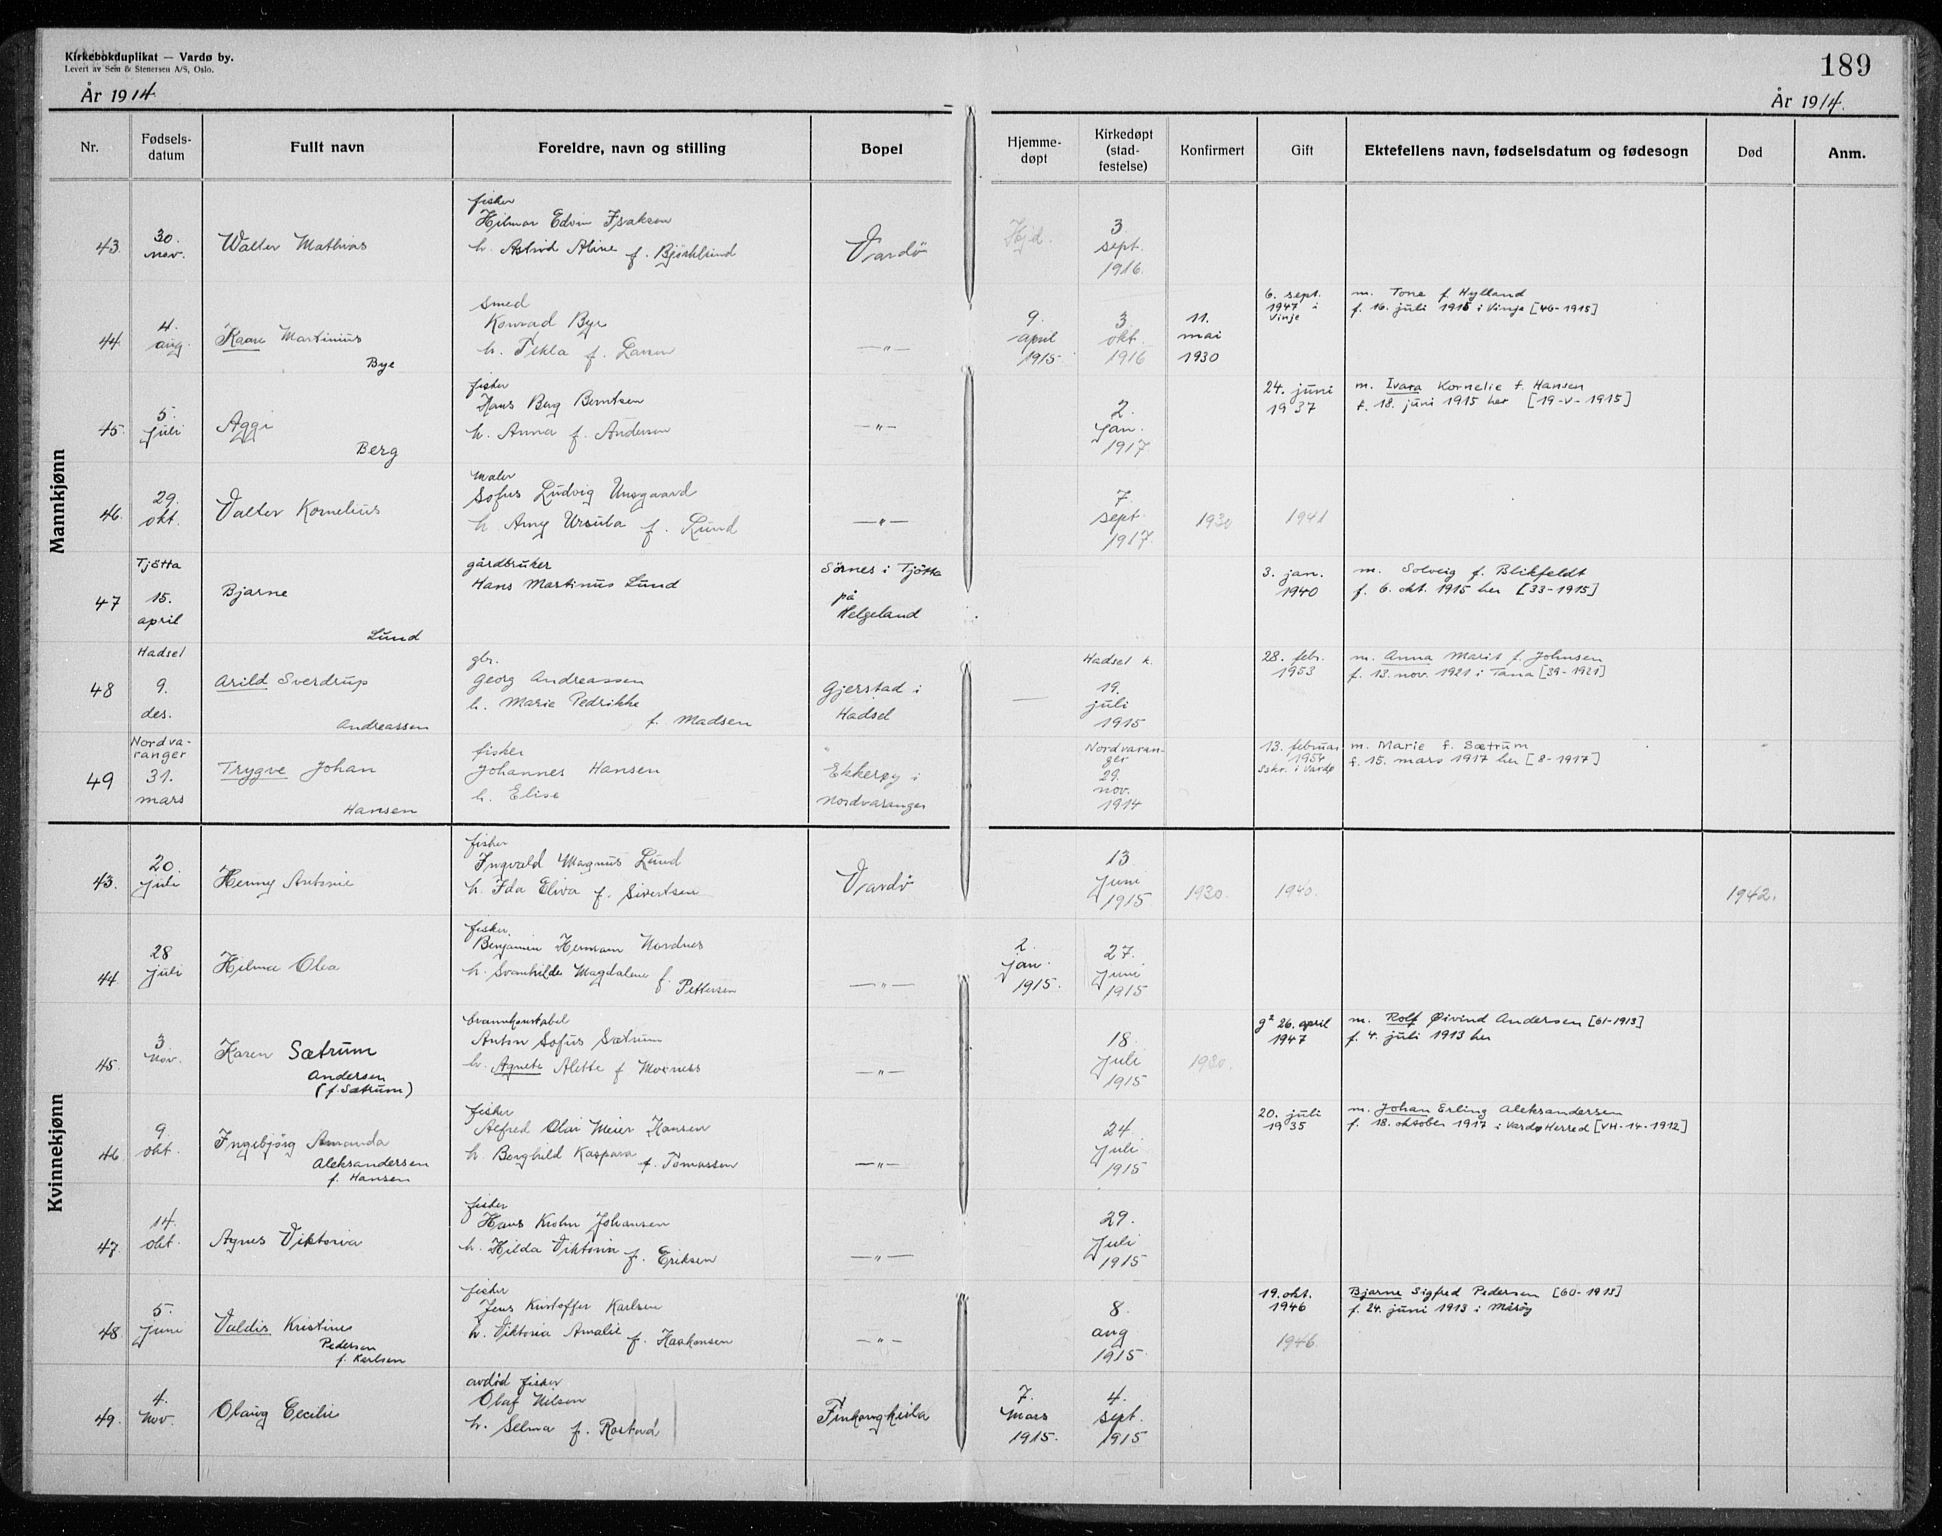 Kirkebokduplikat — Vardø by.
Levert av Sem & Stenersen A/S, Oslo.
189
År 1914
År 1914.
Nr.
Fødsels-
datum
Fullt navn
Foreldre, navn og stilling
Bopel
Hjemme-
døpt
Kirkedøpt
(stad-
festelse)
Konfirmert
Gift
Ektefellens navn, fødselsdatum og fødesogn
Død
Anm.
Mannkjønn
43.
30.
nov.
Walter Mathias
fisker
Hilmar Edvin Isaksen
h. Astrid Aline f. Bjørklund
Vardö
Hjd.
3.
sept.
1916.
44.
4.
aug.
Kaare Martinius
Bye
Smed
Konrad Bye
h. Tekla f. Larsen
—"—
9.
april
1915.
3.
okt.
1916
11.
mai
1930
6. sept.
1947 i
Vinje
m. Tone f. Hylland
f. 16. juli 1915 i Vinje [46-1915]
45.
5.
juli
Aggi
Berg
fisker
Hans Berg Berntsen
h. Anna f. Andersen
—"—
2.
jan.
1917.
24. juni
1937
m. Ivara Kornelie f. Hansen
f. 18. juni 1915 her [19-V-1915]
46.
29.
okt.
Valter Kornelius
maler
Sofus Ludvig Unsgaard
h. Amy Ursula f. Lund
—"—
7.
sept.
1917.
1930
1941
47
Tjötta
15.
april
Bjarne
Lund
gårdbruker
Hans Martinus Lund
Sörnes i Tjötta
på
Helgeland
3. jan.
1940
m. Solveig f. Blikfeldt
f. 6. okt. 1915 her [33-1915]
48
Hadsel
9.
des.
Arild Sverdrup
Andreassen
gbr.
Georg Andreassen
h. Marie Pedrikke
f. Madsen
Gjerstad i
Hadsel
—
Hadsel k.
19.
juli
1915
28. febr.
1953
m. Anna Marit f. Johnsen
f. 13. nov. 1921 i Tana [39-1921]
49
Nordva-
ranger
31.
mars
Trygve Johan
Hansen
fisker
Johannes Hansen
h. Elise
Ekkerøy i
Nordvaranger
Nordvaran-
ger
29.
nov.
1914
13. februar
1954
Sskr. i Vardø
m. Marie f. Sætrum
f. 15. mars 1917 her [8-1917]
Kvinnekjønn
43.
20.
juli
Henny Antonie
fisker
Ingvald Magnus Lund
h. Ida Eliva f. Sivertsen
Vardö
13
juni
1915
1930.
1940.
1942.
44
28
juli
Hilma Olea
fisker.
Benjamin Hermann Nordnes
h. Svanhilde Magdalene f. Pettersen
—"—
2.
jan.
1915.
27.
juni
1915
45.
3.
Nov.
Karen Sætrum
Andersen
(f. Sætrum)
brannkonstabel
Anton Sofus Sætrum
h. Agnete Alette f.
—"—
18.
juli
1915
1930.
g² 26. april
1947
m. Rolf Øivind Andersen [61-1913]
f. 4. juli 1913 her
46.
9
okt.
Ingebjörg Amanda
Aleksandersen
f. Hansen
fisker
Alfred Olav Meier Hansen
h. Borghild Kaspara f. Tomassen
—"—
24
juli
1915
20. juli
1935
m. Johan Erling Aleksandersen
f. 18. oktober 1917 i Vardø Herred [VH-14-1912]
47.
14.
okt.
Agnes Viktoria
fisker
Hans Krohn Johansen
h. Hilda Viktoria f. Eriksen
—"—
29.
juli
1915
48.
5.
juni
Valdis Kristine
Pedersen
f. Karlsen
fisker
Jens Kristoffer Karlsen
h. Viktoria Amalie f. Haakonsen
—"—
8.
aug
1915
19. okt.
1946
1946
Bjarne Sigfred Pedersen [60-1913]
f. 24. juni 1913 i Måsöy
49.
4.
Nov.
Olaug Cecilie
avdød fisker
Olaf Nilsen
h. Selma f.
7.
Mars
1915.
4.
sept.
1915